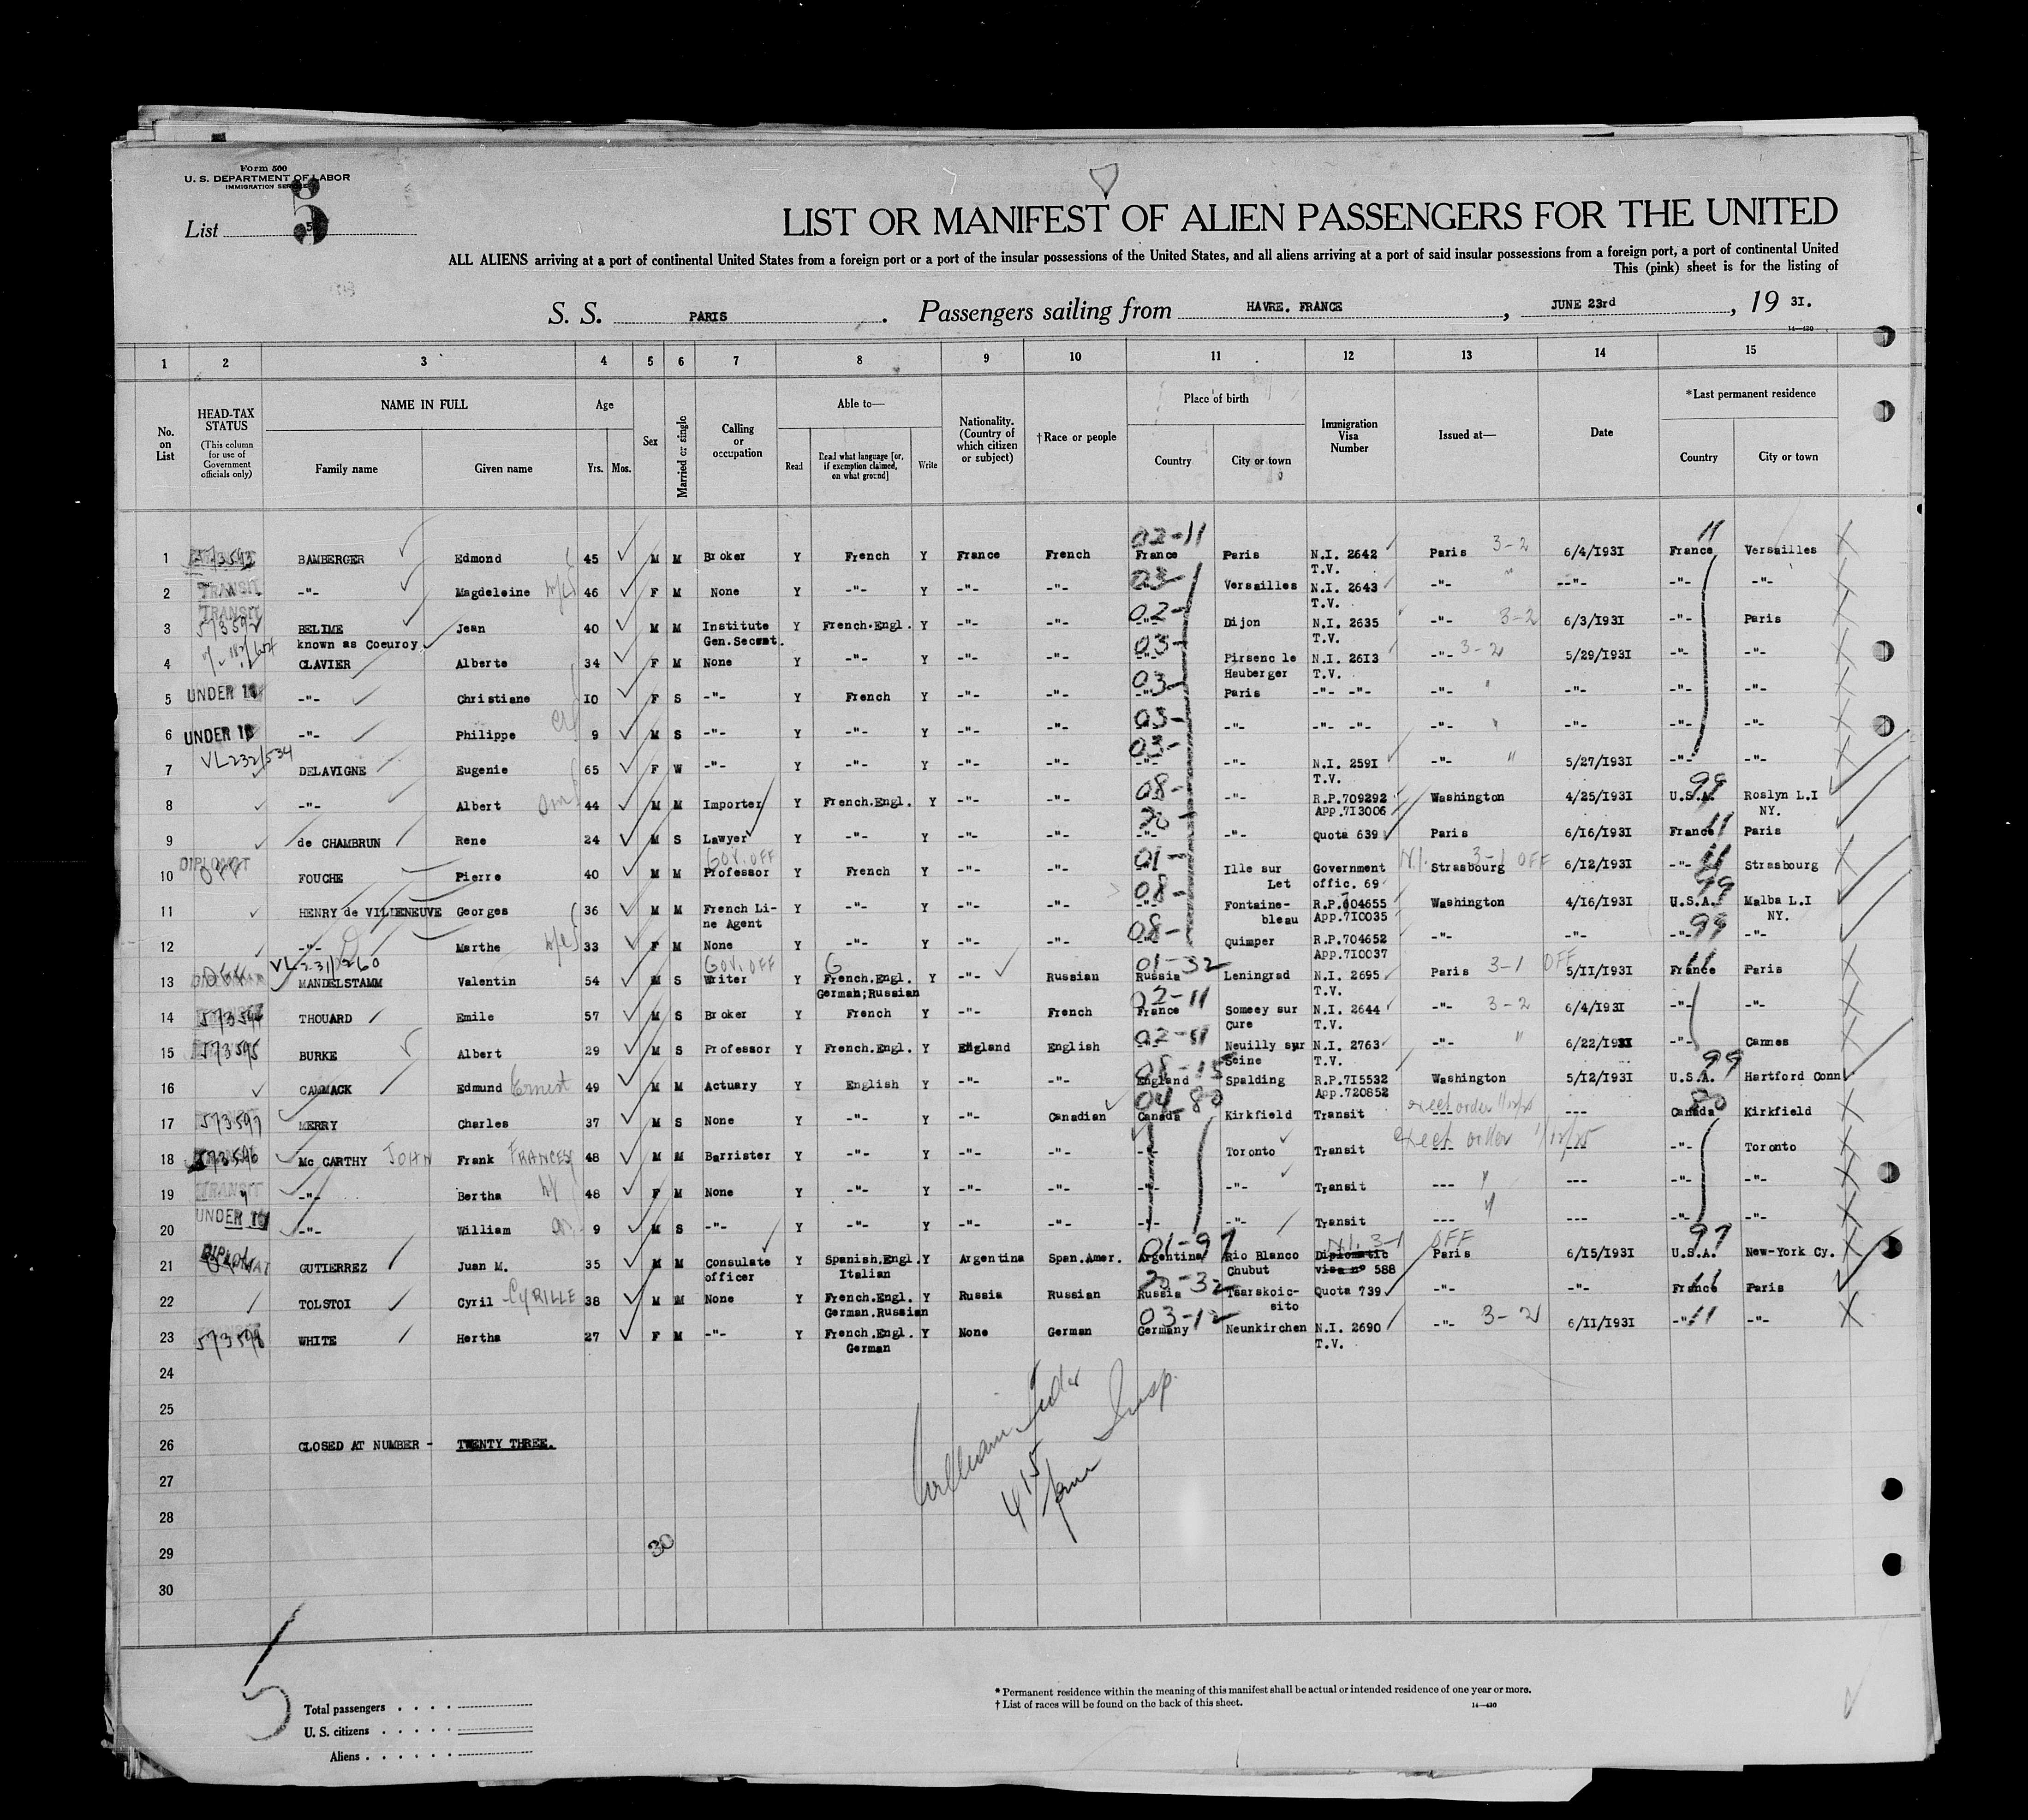 Form 500
U. S. DEPARTMENT OF LABOR
IMMIGRATION SERVICE
List 5
LIST OR MANIFEST OF ALIEN PASSENGERS FOR THE UNITED
ALL ALIENS arriving at a port of continental United States from a foreign port or a port of the insular possessions of the United States, and all aliens arriving at a port of said insular possessions from a foreign port, a port of continental United
This (pink) sheet is for the listing of
S. S. PARIS. Passengers sailing from HAVRE. FRANCE, JUNE 23rd, 19 31.
14—420
1 2 3 4 5 6 7 8 9 10 11 12 13 14 15
No. on List
HEAD-TAX STATUS (This column for use of Government officials only)
NAME IN FULL Family name Given name
Age Yrs. Mos.
Sex
Married or single
Calling or occupation
Able to— Read Read what language [or, if exemption claimed, on what ground] Write
Nationality. (Country of which citizen or subject)
†Race or people
Place of birth Country City or town
Immigration Visa Number
Issued at—
Date
*Last permanent residence Country City or town
02-11 11
1 573593 BAMBERGER Edmond 45 M M Broker Y French Y France French France Paris N.I. 2642 Paris 3-2 6/4/1931 France Versailles
T.V.
2 TRANSIT -"- Magdeleine 46 F M None Y -"- Y -"- -"- 03- Versailles N.I. 2643 -"- --"- -"- -"-
TRANSIT T.V.
3 573592 BELIME Jean 40 M M Institute Y French.Engl. Y -"- -"- 02- Dijon N.I. 2635 -"- 3-2 6/3/1931 -"- Paris
known as Coeuroy Gen.Secrat. T.V.
4 CLAVIER Alberte 34 F M None Y -"- Y -"- -"- 03- Pirsenc le N.I. 2613 -"- 3-2 5/29/1931 -"- -"-
Hauberger T.V.
5 UNDER 16 -"- Christiane 10 F S -"- Y French Y -"- -"- 03- Paris -"- -"- -"- " -"- -"- -"-
6 UNDER 16 -"- Philippe 9 M S -"- Y -"- Y -"- -"- 03- -"- -"- -"- -"- " -"- -"- -"-
VL232/534
7 DELAVIGNE Eugenie 65 F W -"- Y -"- Y -"- -"- 03- -"- N.I. 2591 -"- " 5/27/1931 -"- -"-
T.V.
8 -"- Albert 44 M M Importer Y French.Engl. Y -"- -"- 08- -"- R.P.709292 Washington 4/25/1931 U.S.A. 99 Roslyn L.I
App.713006 NY.
9 de CHAMBRUN Rene 24 M S Lawyer Y -"- Y -"- -"- 20- -"- Quota 639 Paris 6/16/1931 France 11 Paris
DIPLOMAT GOV. OFF
10 OFF FOUCHE Pierre 40 M M Professor Y French Y -"- -"- 01- Ille sur Government N.I. Strasbourg 3-1 OFF 6/12/1931 -"- 11 Strasbourg
Let offic. 69
11 HENRY de VILLENEUVE Georges 36 M M French Li- Y -"- Y -"- -"- 08- Fontaine- R.P.704655 Washington 4/16/1931 U.S.A. 99 Malba L.I
ne Agent bleau App.710035 NY.
12 -"- Marthe 33 F M None Y -"- Y -"- -"- 08- Quimper R.P.704652 -"- -"- -"- 99 -"-
VL-231/260 GOV. OFF App.710037
13 MANDELSTAMM Valentin 54 M S Writer Y French.Engl. Y -"- Russian 01-32 Russia Leningrad N.I. 2695 Paris 3-1 OFF 5/11/1931 France 11 Paris
German;Russian T.V.
14 573594 THOUARD Emile 57 M S Broker Y French Y -"- French 02-11 France Someey sur N.I. 2644 -"- 3-2 6/4/1931 -"- -"-
Cure T.V.
15 573595 BURKE Albert 29 M S Professor Y French.Engl. Y England English 02-11 -"- Neuilly sur N.I. 2763 -"- " 6/22/1931 -"- Cannes
Seine T.V.
16 CAMMACK Edmund Ernest 49 M M Actuary Y English Y -"- -"- 08-15 England Spalding R.P.715532 Washington 5/12/1931 U.S.A. 99 Hartford Conn
App.720852
17 573597 MERRY Charles 37 M S None Y -"- Y -"- Canadian 04-80 Canada Kirkfield Transit --- --- Canada 80 Kirkfield
18 573596 Mc CARTHY JOHN Frank FRANCES 48 M M Barrister Y -"- Y -"- -"- -"- Toronto Transit --- --- -"- Toronto
19 TRANSIT -"- Bertha 48 F M None Y -"- Y -"- -"- -"- -"- Transit --- --- -"- -"-
20 UNDER 16 -"- William 9 M S -"- Y -"- Y -"- -"- -"- -"- Transit --- --- -"- -"-
N.I. 3-1 OFF
21 DIPLOMAT GUTIERREZ Juan M. 35 M M Consulate Y Spanish.Engl. Y Argentina Span.Amer. 01-97 Argentina Rio Blanco Diplomatic Paris 6/15/1931 U.S.A. 97 New-York Cy.
officer Italian Chubut visa nº 588
22 TOLSTOI Cyril CYRILLE 38 M M None Y French.Engl. Y Russia Russian 20-32 Russia Tsarskoic- Quota 739 -"- -"- France 11 Paris
German.Russian sito
23 573598 WHITE Hertha 27 F M -"- Y French.Engl. Y None German 03-12 Germany Neunkirchen N.I. 2690 -"- 3-2 6/11/1931 -"- 11 -"-
German T.V.
24
25
26 CLOSED AT NUMBER - TWENTY THREE.
27
28
29
30
William
Insp.
415
30
5
Total passengers
U. S. citizens
Aliens
* Permanent residence within the meaning of this manifest shall be actual or intended residence of one year or more.
† List of races will be found on the back of this sheet.
14—420